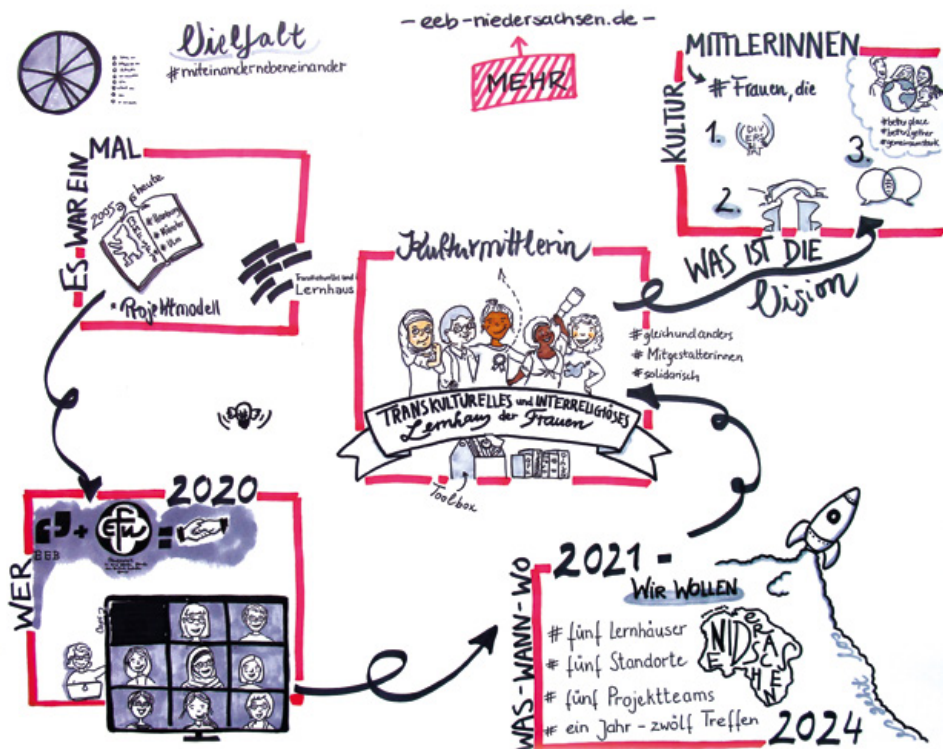 Vielfalt
#miteinandernebeneinander
- eeb-niedersachsen.de -
MEHR
KULTUR
MITTLERINNEN
# Frauen, die
1.
DIVERSITÄT
2.
3.
#betterplace
#bettertogether
#gemeinsamstark
ES WAR EIN
MAL
2005
heute
# Hamburg
# Münster
# Ulm
* Projektmodell
Lernhaus
Kulturmittlerin
WAS IST DIE
Vision
#gleichundanders
# Mitgestalterinnen
#solidarisch
TRANSKULTURELLES und INTERRELIGIÖSES
Lernhaus der Frauen
Toolbox
WER
2020
+
=
EEB
WAS-WANN-WO
2021 -
WIR WOLLEN
# fünf Lernhäuser
# fünf Standorte
# fünf Projektteams
# ein Jahr - zwölf Treffen
NIEDERSACHSEN
2024